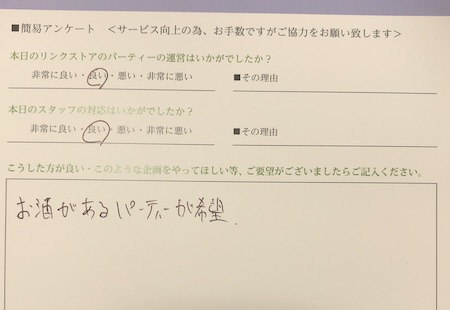 ■簡易アンケート ＜サービス向上の為、お手数ですがご協力をお願い致します＞
本日のリンクストアのパーティーの運営はいかがでしたか？
非常に良い・良い・悪い・非常に悪い ■その理由
本日のスタッフの対応はいかがでしたか？
非常に良い・良い・悪い・非常に悪い ■その理由
こうした方が良い・このような企画をやってほしい等、ご要望がございましたらご記入ください。
お酒があるパーティーが希望